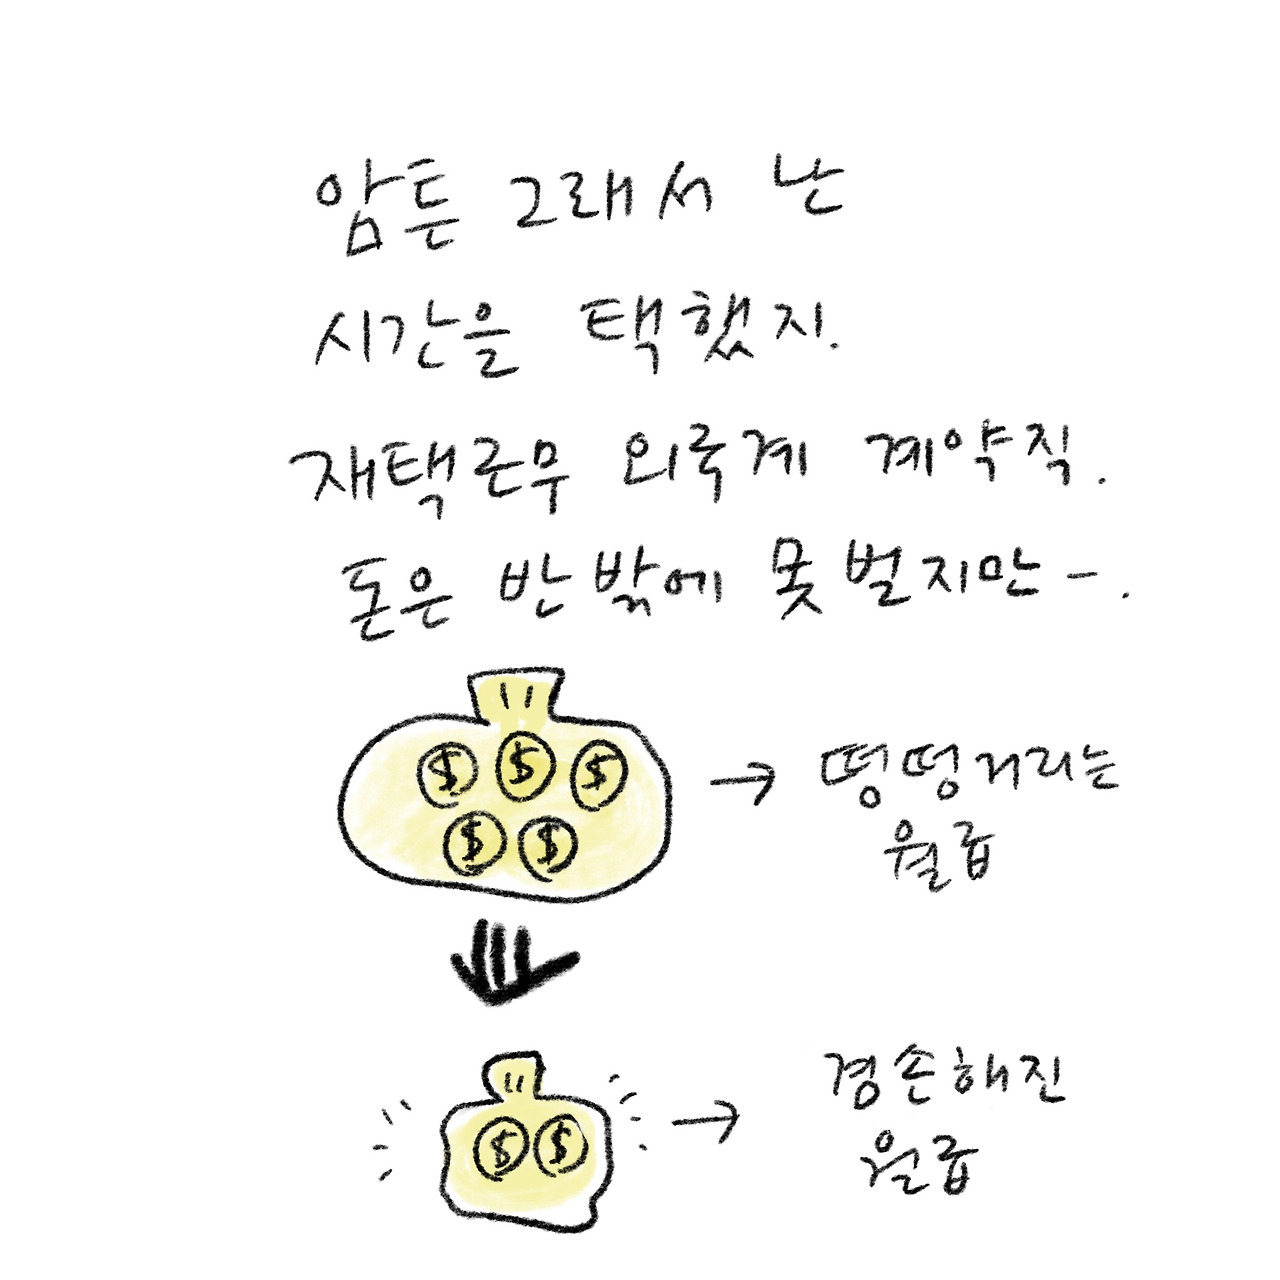 암튼 그래서 난
시간을 택했지.
재택근무 외국계 계약직.
돈은 반 밖에 못 벌지만-.
$ $ $
$ $
→ 떵떵거리는
월급
$ $
→ 겸손해진
월급